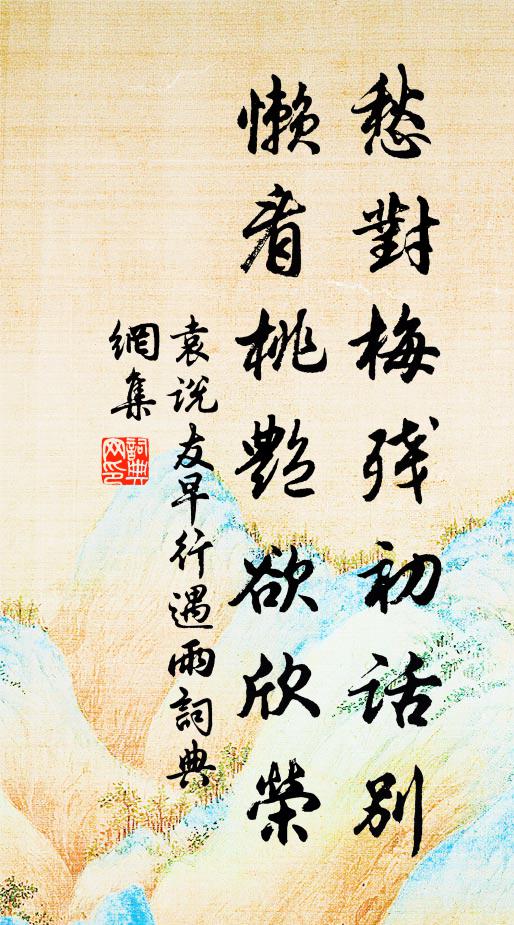 愁對梅殘初話別
懶看桃艷欲欣榮
袁說友早行遇雨詞典
網集
詞典網印